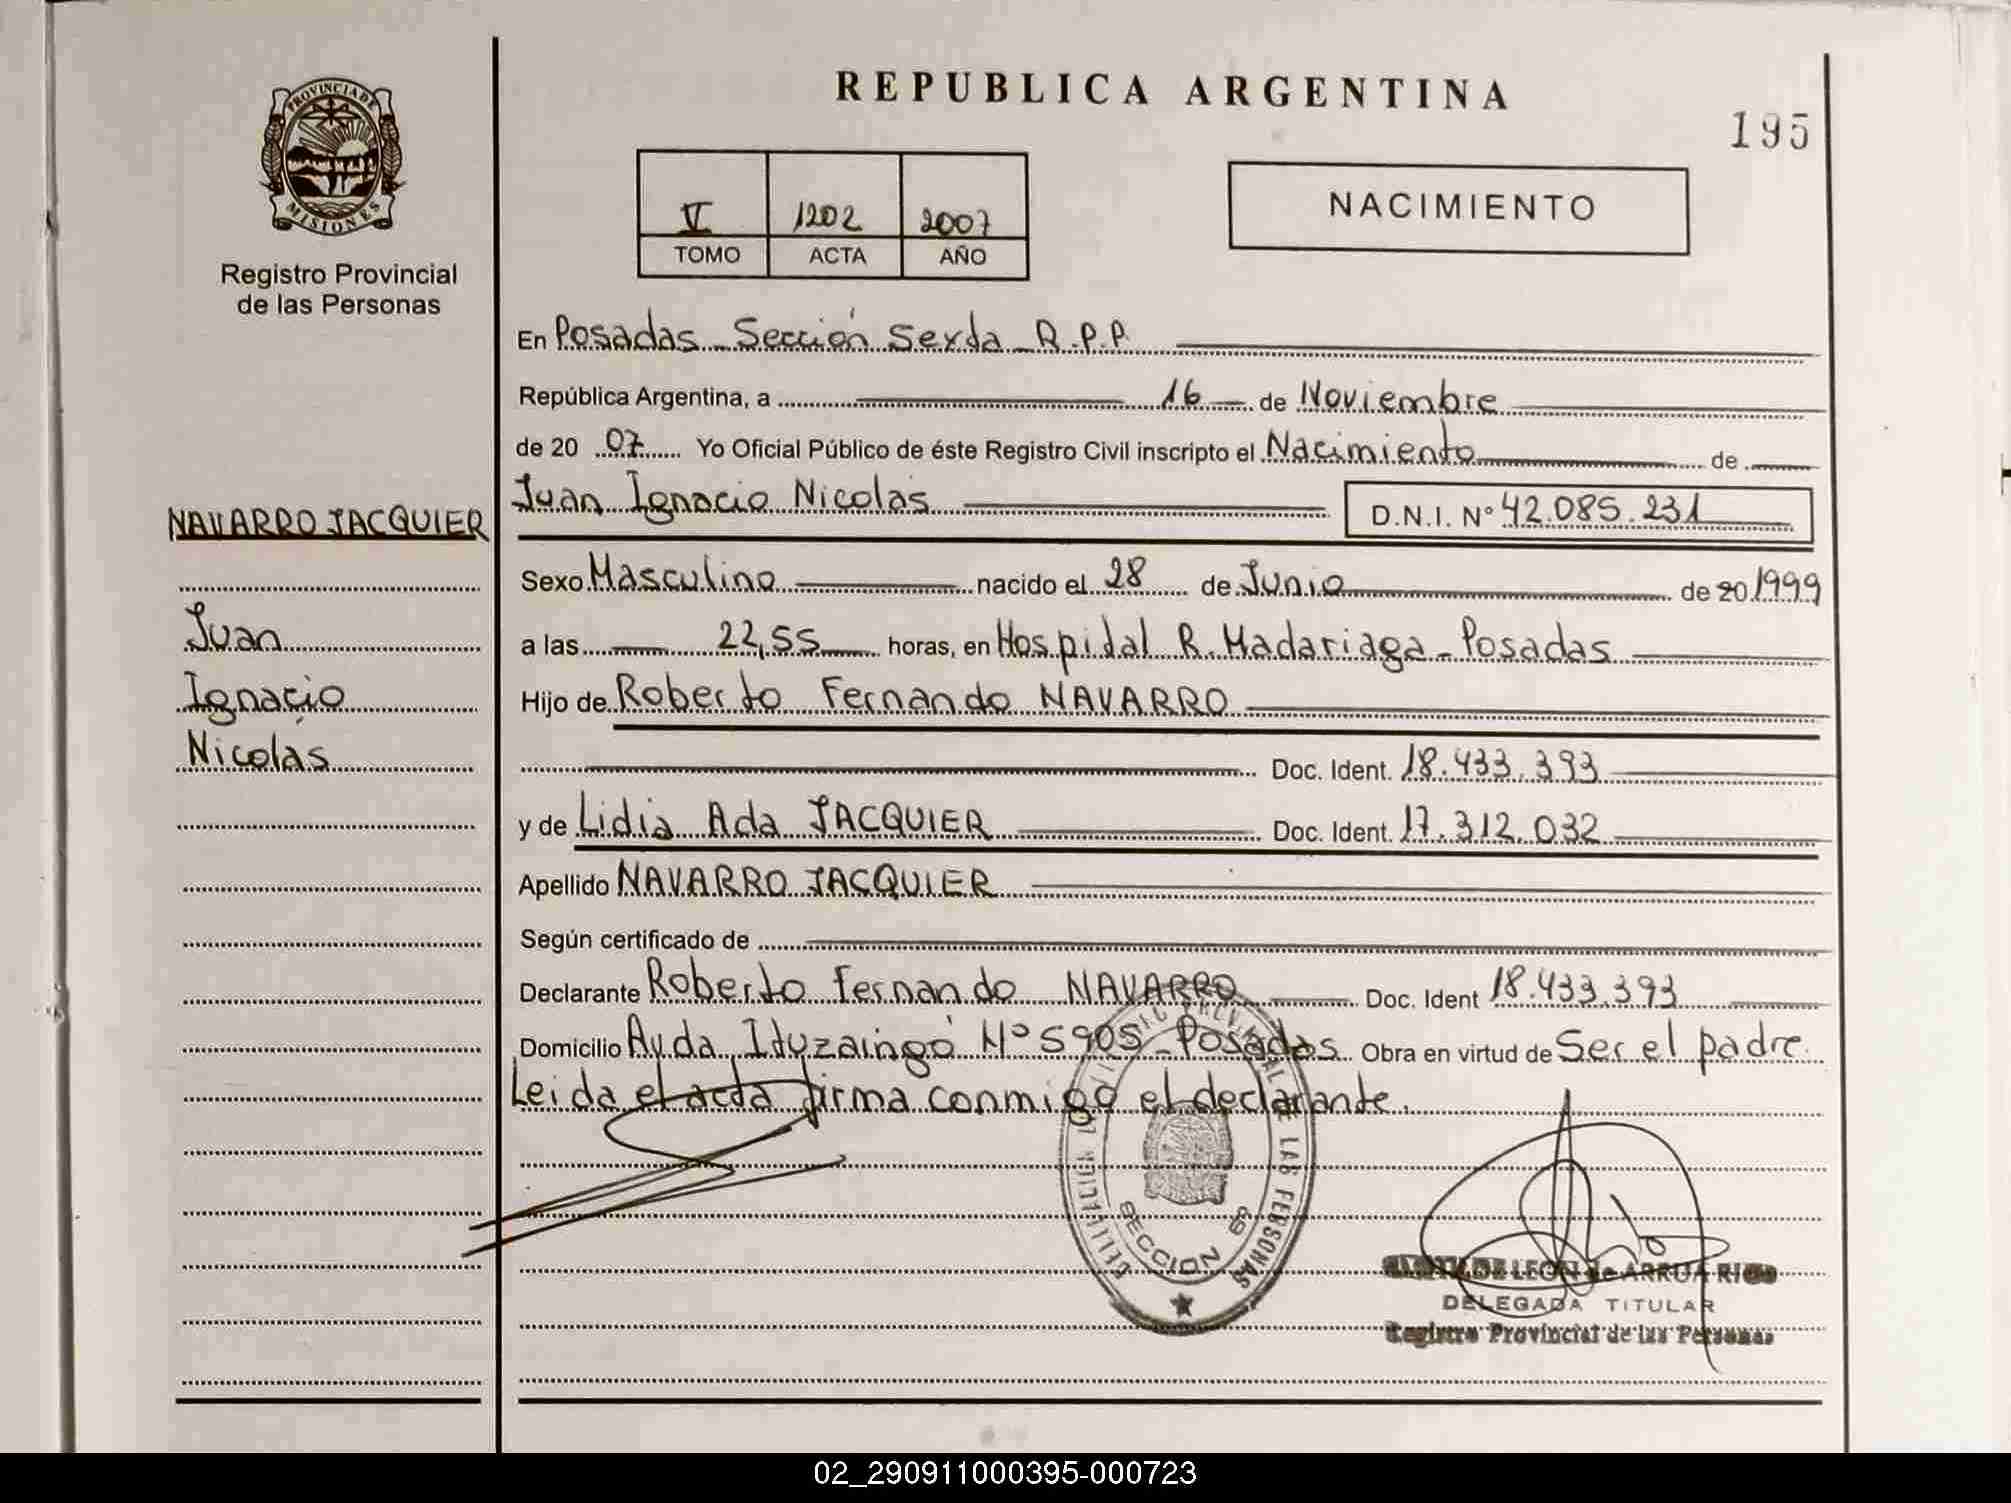 REPUBLICA ARGENTINA
195
PROVINCIA DE
MISIONES
Registro Provincial
de las Personas
V 1202 2007
TOMO ACTA AÑO
NACIMIENTO
En Posadas - Sección Sexta - R.P.P.
República Argentina, a 16 de Noviembre
de 20 07 Yo Oficial Público de éste Registro Civil inscripto el Nacimiento de
Juan Ignacio Nicolás D.N.I. Nº 42.085.231
NAVARRO JACQUIER
Juan
Ignacio
Nicolás
Sexo Masculino nacido el 28 de Junio de 20 1999
a las 22,55 horas, en Hospital R. Madariaga - Posadas
Hijo de Roberto Fernando NAVARRO
Doc. Ident. 18.433.393
y de Lidia Ada JACQUIER Doc. Ident. 17.312.032
Apellido NAVARRO JACQUIER
Según certificado de
Declarante Roberto Fernando NAVARRO Doc. Ident 18.433.393
Domicilio Avda Ituzaingó Nº 5905 - Posadas Obra en virtud de Ser el padre
Leida el acta firma conmigo el declarante.
DE LAS PERSONAS
SECCION 6º
DE LEON de ARRUA
DELEGADA TITULAR
Registro Provincial de las Personas
02_290911000395-000723